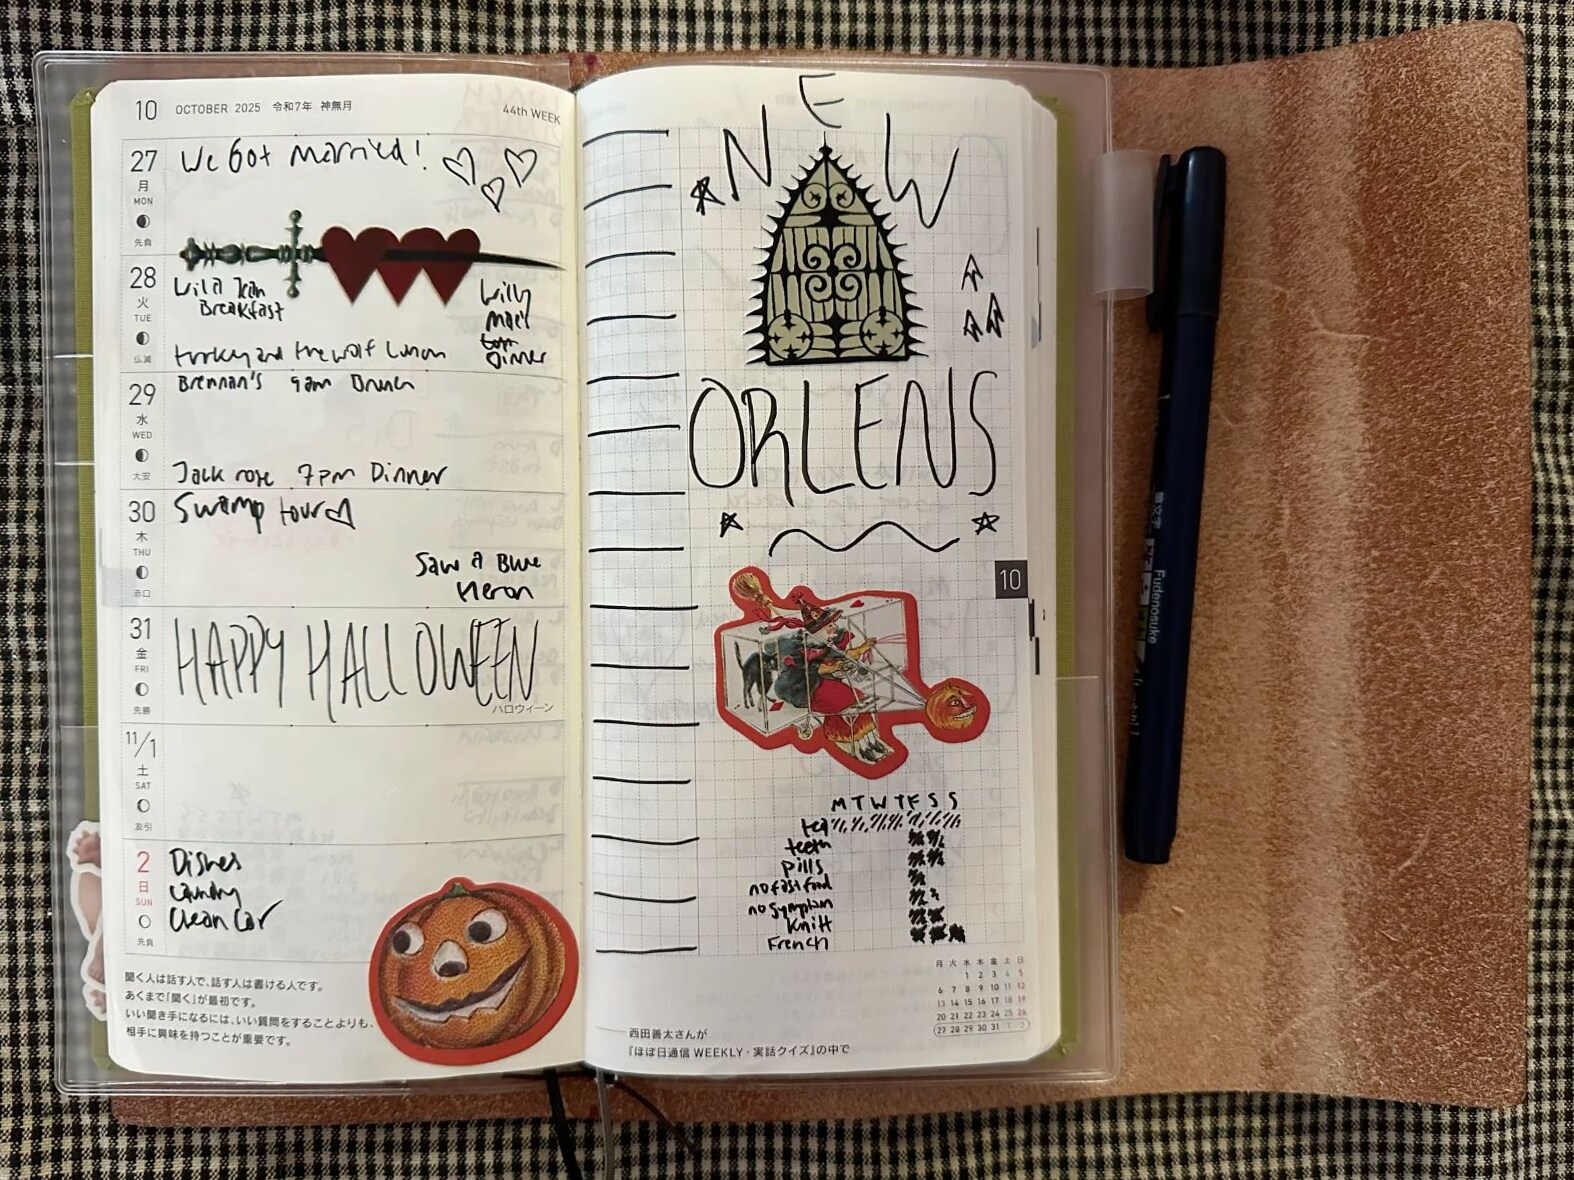 10 OCTOBER 2025 令和7年 神無月 44th WEEK
27 We Got Married!
月
MON
先負
28
火
TUE
仏滅
Breakfast
Willy
Mae's
Dinner
turkey and the wolf Lunch
29 Brennan's 9am Brunch
水
WED
大安
Jack rose 7pm Dinner
30 Swamp tour
木
THU
赤口
Saw a Blue
Heron
31 HAPPY HALLOWEEN
金
FRI
先勝
ハロウィーン
11/1
土
SAT
友引
2 Dishes
日 Laundry
SUN
Clean Car
先負
聞く人は話す人で、話す人は書ける人です。
あくまで「聞く」が最初です。
いい聞き手になるには、いい質問をすることよりも、
相手に興味を持つことが重要です。
NEW
ORLENS
10
M T W T F S S
tea
teeth
pills
no fast food
no symptom
Knitt
French
月 火 水 木 金 土 日
1 2 3 4 5
6 7 8 9 10 11 12
13 14 15 16 17 18 19
20 21 22 23 24 25 26
27 28 29 30 31 1 2
西田善太さんが
『ほぼ日通信WEEKLY・実話クイズ』の中で
Fudenosuke